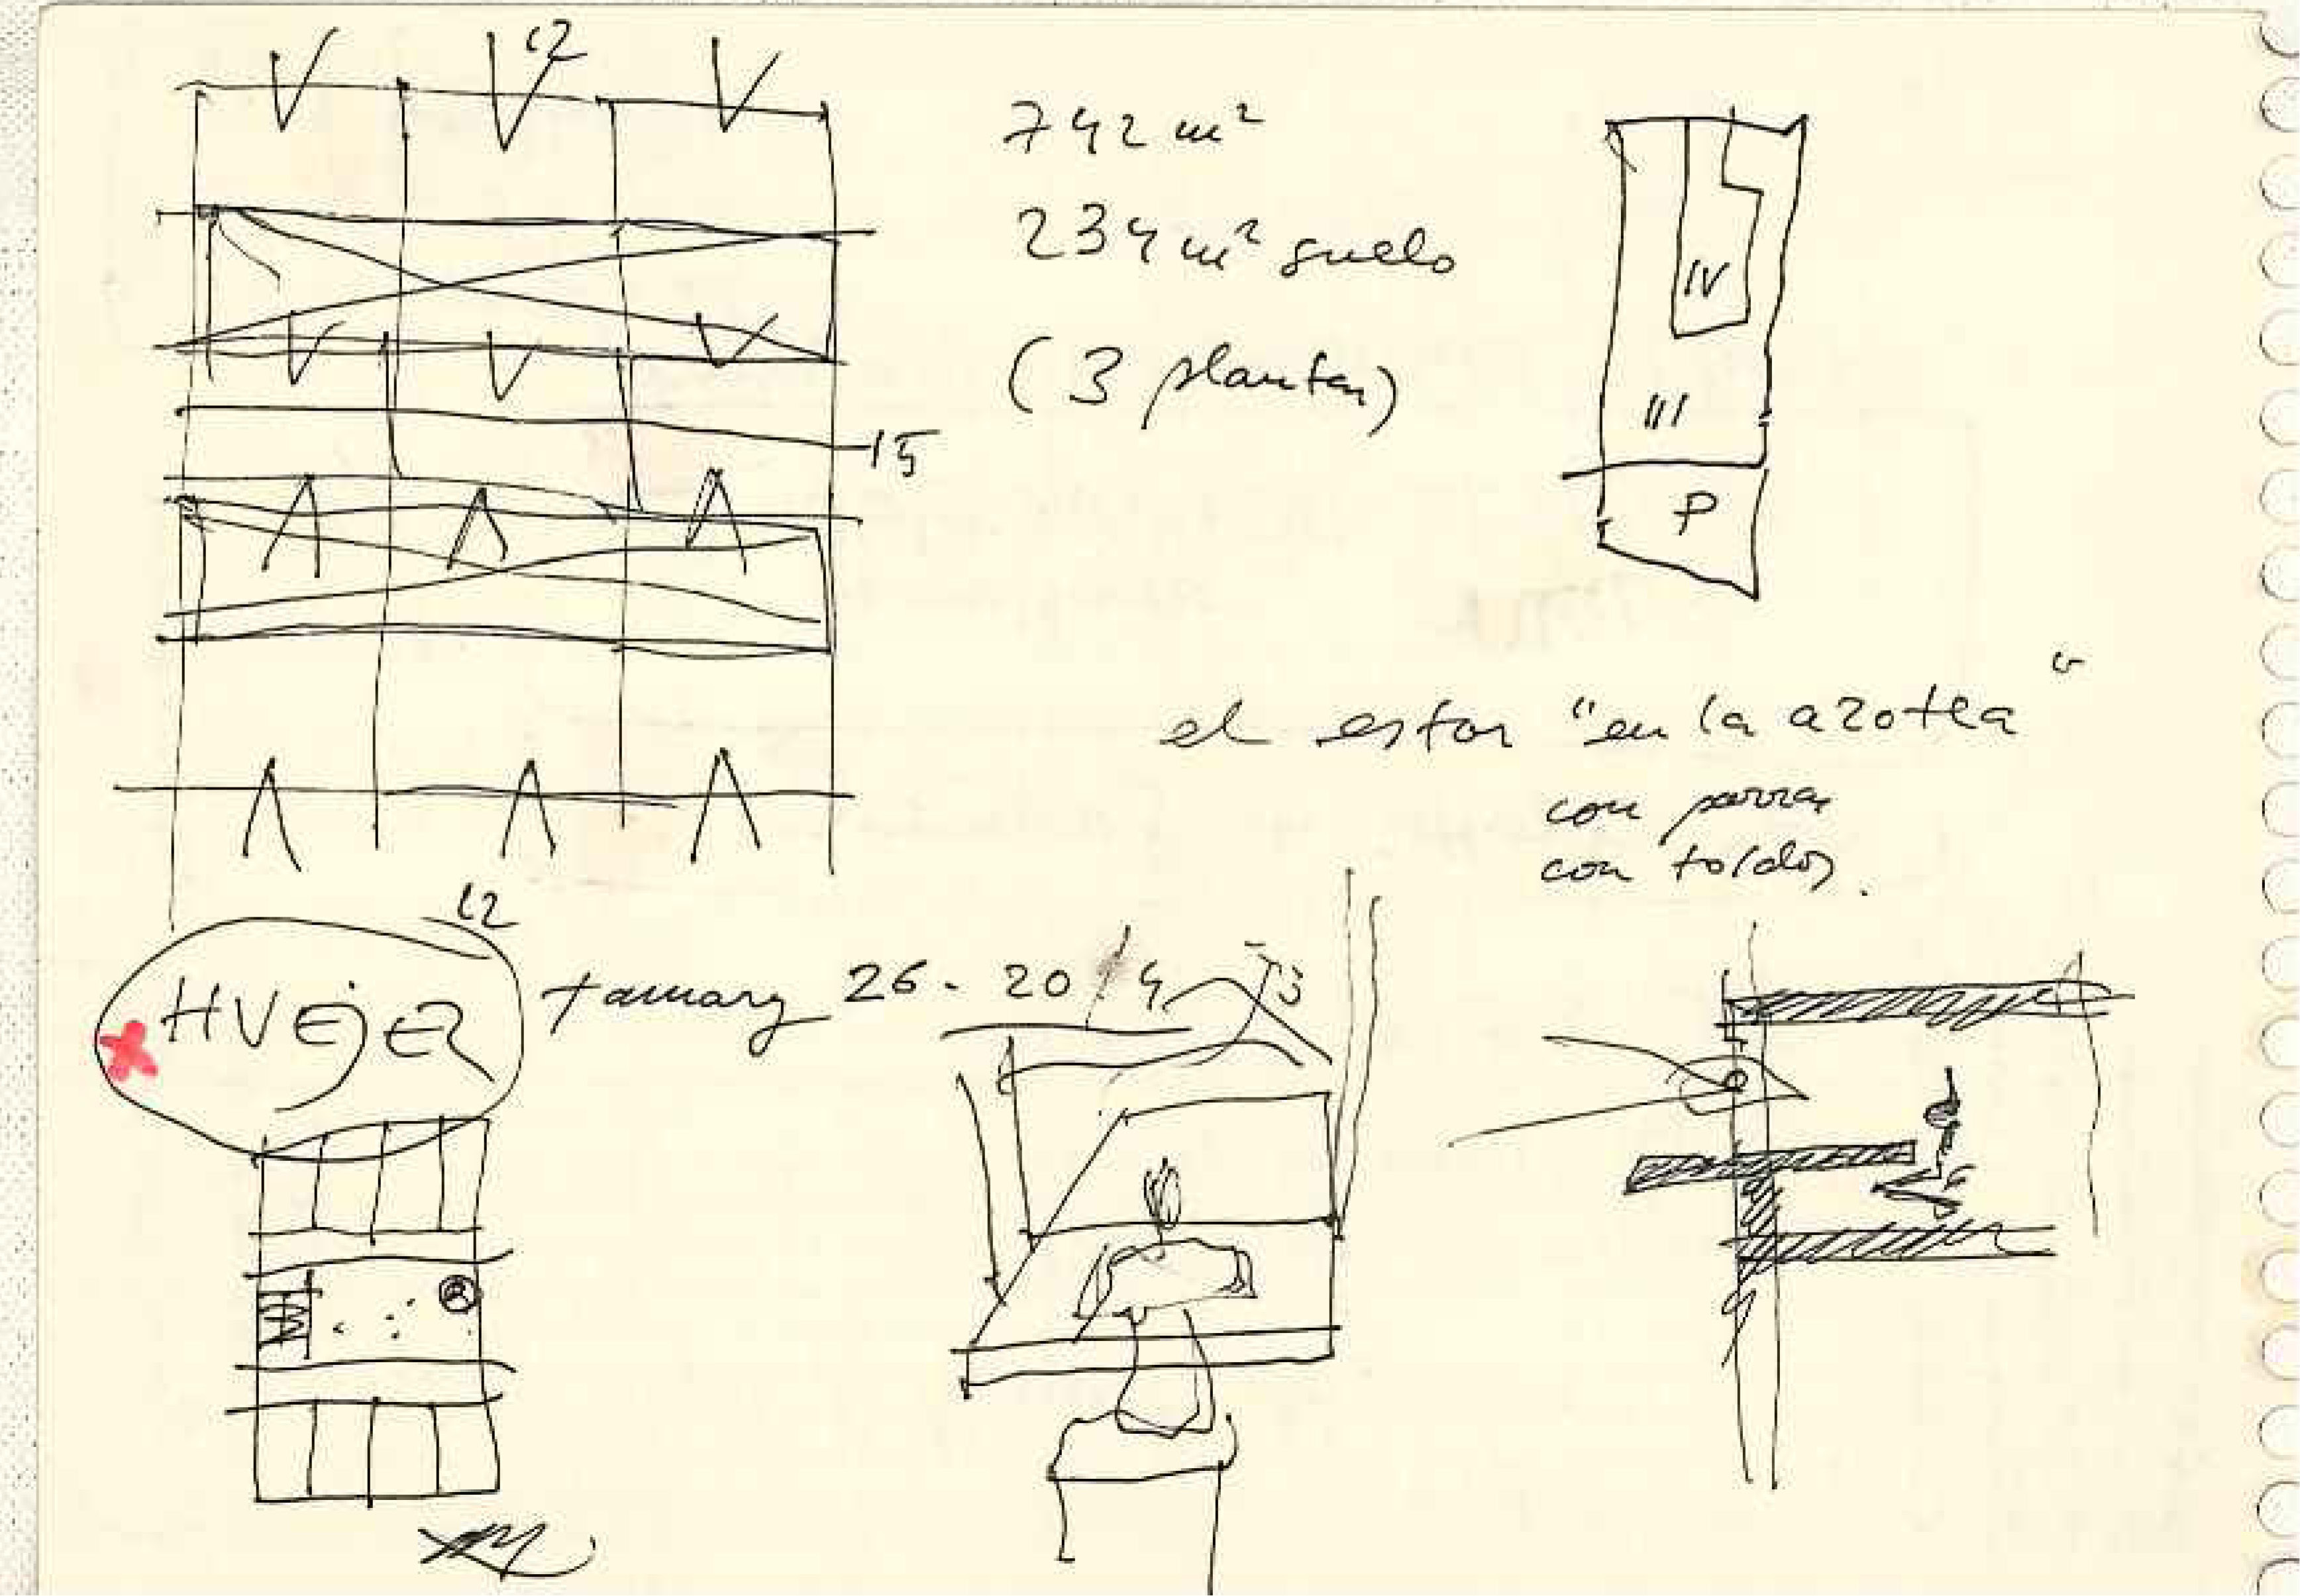 12
742 m²
234 m² suelo
(3 plantas)
15
IV
III
P
el estar "en la azotea"
con parras
con toldos.
12
HVEJER
tamariz 26 - 20 / 4